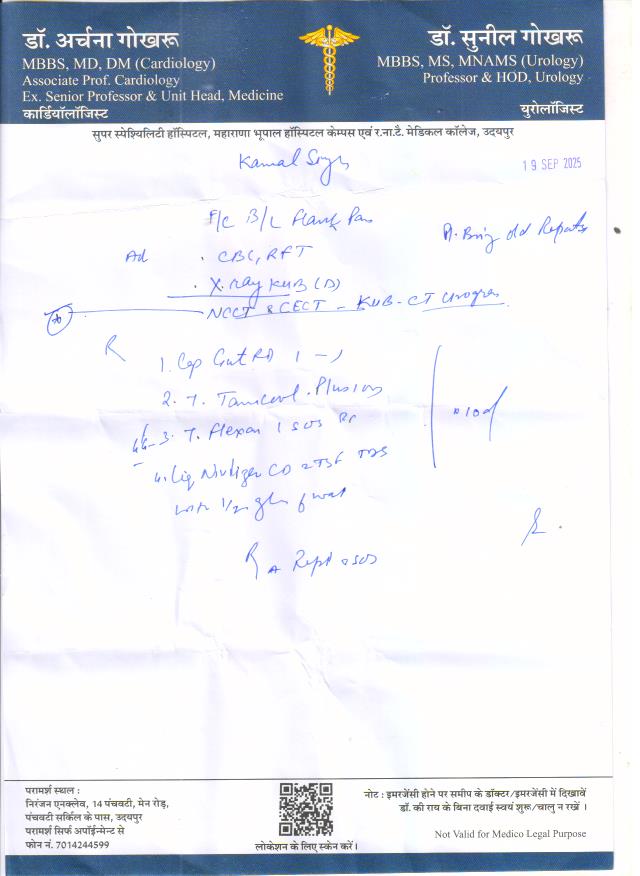 डॉ. अर्चना गोखरू
MBBS, MD, DM (Cardiology)
Associate Prof. Cardiology
Ex. Senior Professor & Unit Head, Medicine
कार्डियॉलॉजिस्ट
डॉ. सुनील गोखरू
MBBS, MS, MNAMS (Urology)
Professor & HOD, Urology
यूरोलॉजिस्ट
सुपर स्पेश्यिलिटी हॉस्पिटल, महाराणा भूपाल हॉस्पिटल केम्पस एवं र.ना.टै. मेडिकल कॉलेज, उदयपुर
Kamal Singh
19 SEP 2025
F/C B/L Flank Pain
Bring old Reports
Ad . CBC, RFT
. X.ray KUB (D)
NCCT & CECT - KUB - CT Urogram
R
1. Cap 1 - 1
2. T.
3. T. 1 SOS
4. Liq TDS
with 1/2 gls of wat
x 10d
R A Rept SOS
परामर्श स्थल :
निरंजन एनक्लेव, 14 पंचवटी, मेन रोड़,
पंचवटी सर्किल के पास, उदयपुर
परामर्श सिर्फ अपॉईन्मेन्ट से
फोन नं. 7014244599
लोकेशन के लिए स्केन करें।
नोट : इमरजेंसी होने पर समीप के डॉक्टर/इमरजेंसी में दिखावें
डॉ. की राय के बिना दवाई स्वयं शुरू/चालु न रखें ।
Not Valid for Medico Legal Purpose